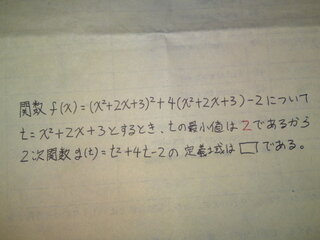 関数 f(x)=(x²+2x+3)²+4(x²+2x+3)-2について
t=x²+2x+3とするとき、tの最小値は2であるから
2次関数g(t)=t²+4t-2の定義域は□である。